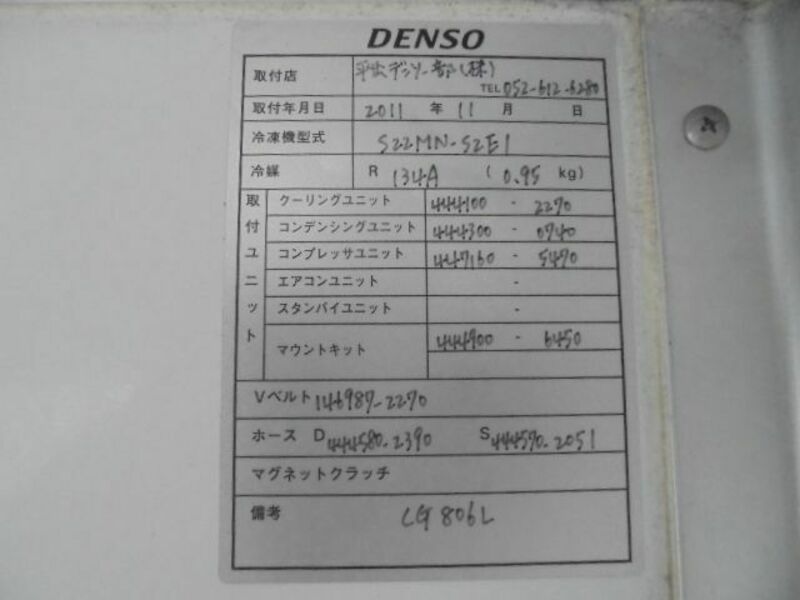 DENSO
取付店 平出デンソー
TEL 052-612-6280
取付年月日 2011 年 11 月 日
冷凍機型式 S22MN-S2E1
冷媒 R 134A ( 0.95 kg)
取付ユニット
クーリングユニット 444100 - 2270
コンデンシングユニット 444300 - 0740
コンプレッサユニット 447160 - 5470
エアコンユニット -
スタンバイユニット -
マウントキット 444900 - 6450
Vベルト 146987-2270
ホース D 444580-2390 S 444570-2051
マグネットクラッチ
備考 LG 806L